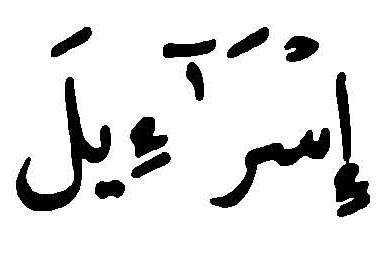 إِسْرَٰٓءِيلَ